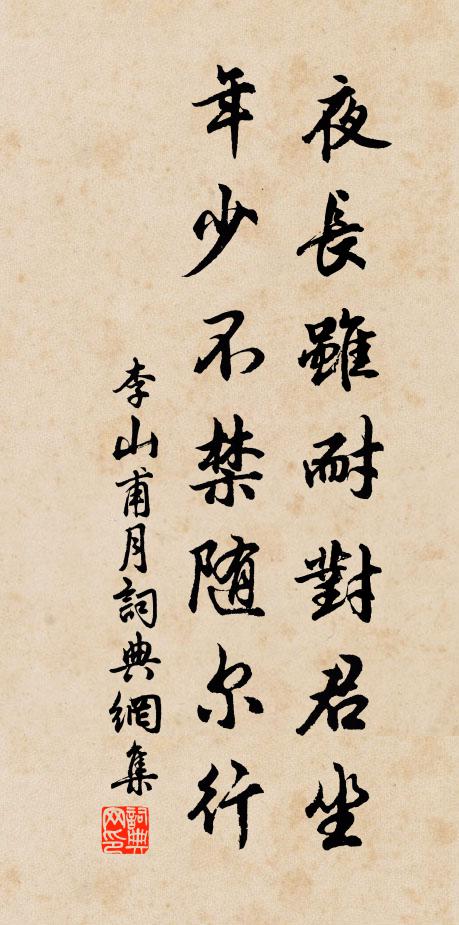 夜長雖耐對君坐
年少不禁随尔行
李山甫月詞典網集
詞典網印